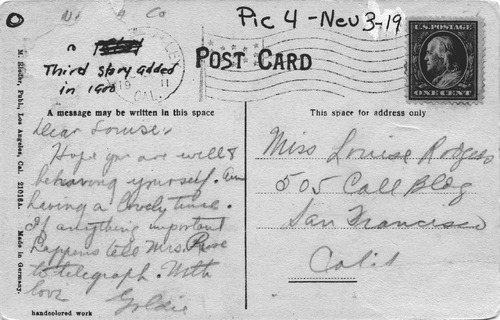 Co
Pic 4 - Nev 3-19
Third story added
in 1900
19 11
CAL.
POST CARD
U.S. POSTAGE
ONE CENT
A message may be written in this space
This space for address only
M. Rieder, Publ., Los Angeles, Cal. 21018A. Made in Germany.
Dear Louise,
Hope you are well &
behaving yourself. Am
having a lovely time.
If anything important
happens tell Mrs. Rose
to telegraph. With
love Goldie
Miss Louise Rodgers
505 Call Bldg
San Francisco
Calif
handcolored work